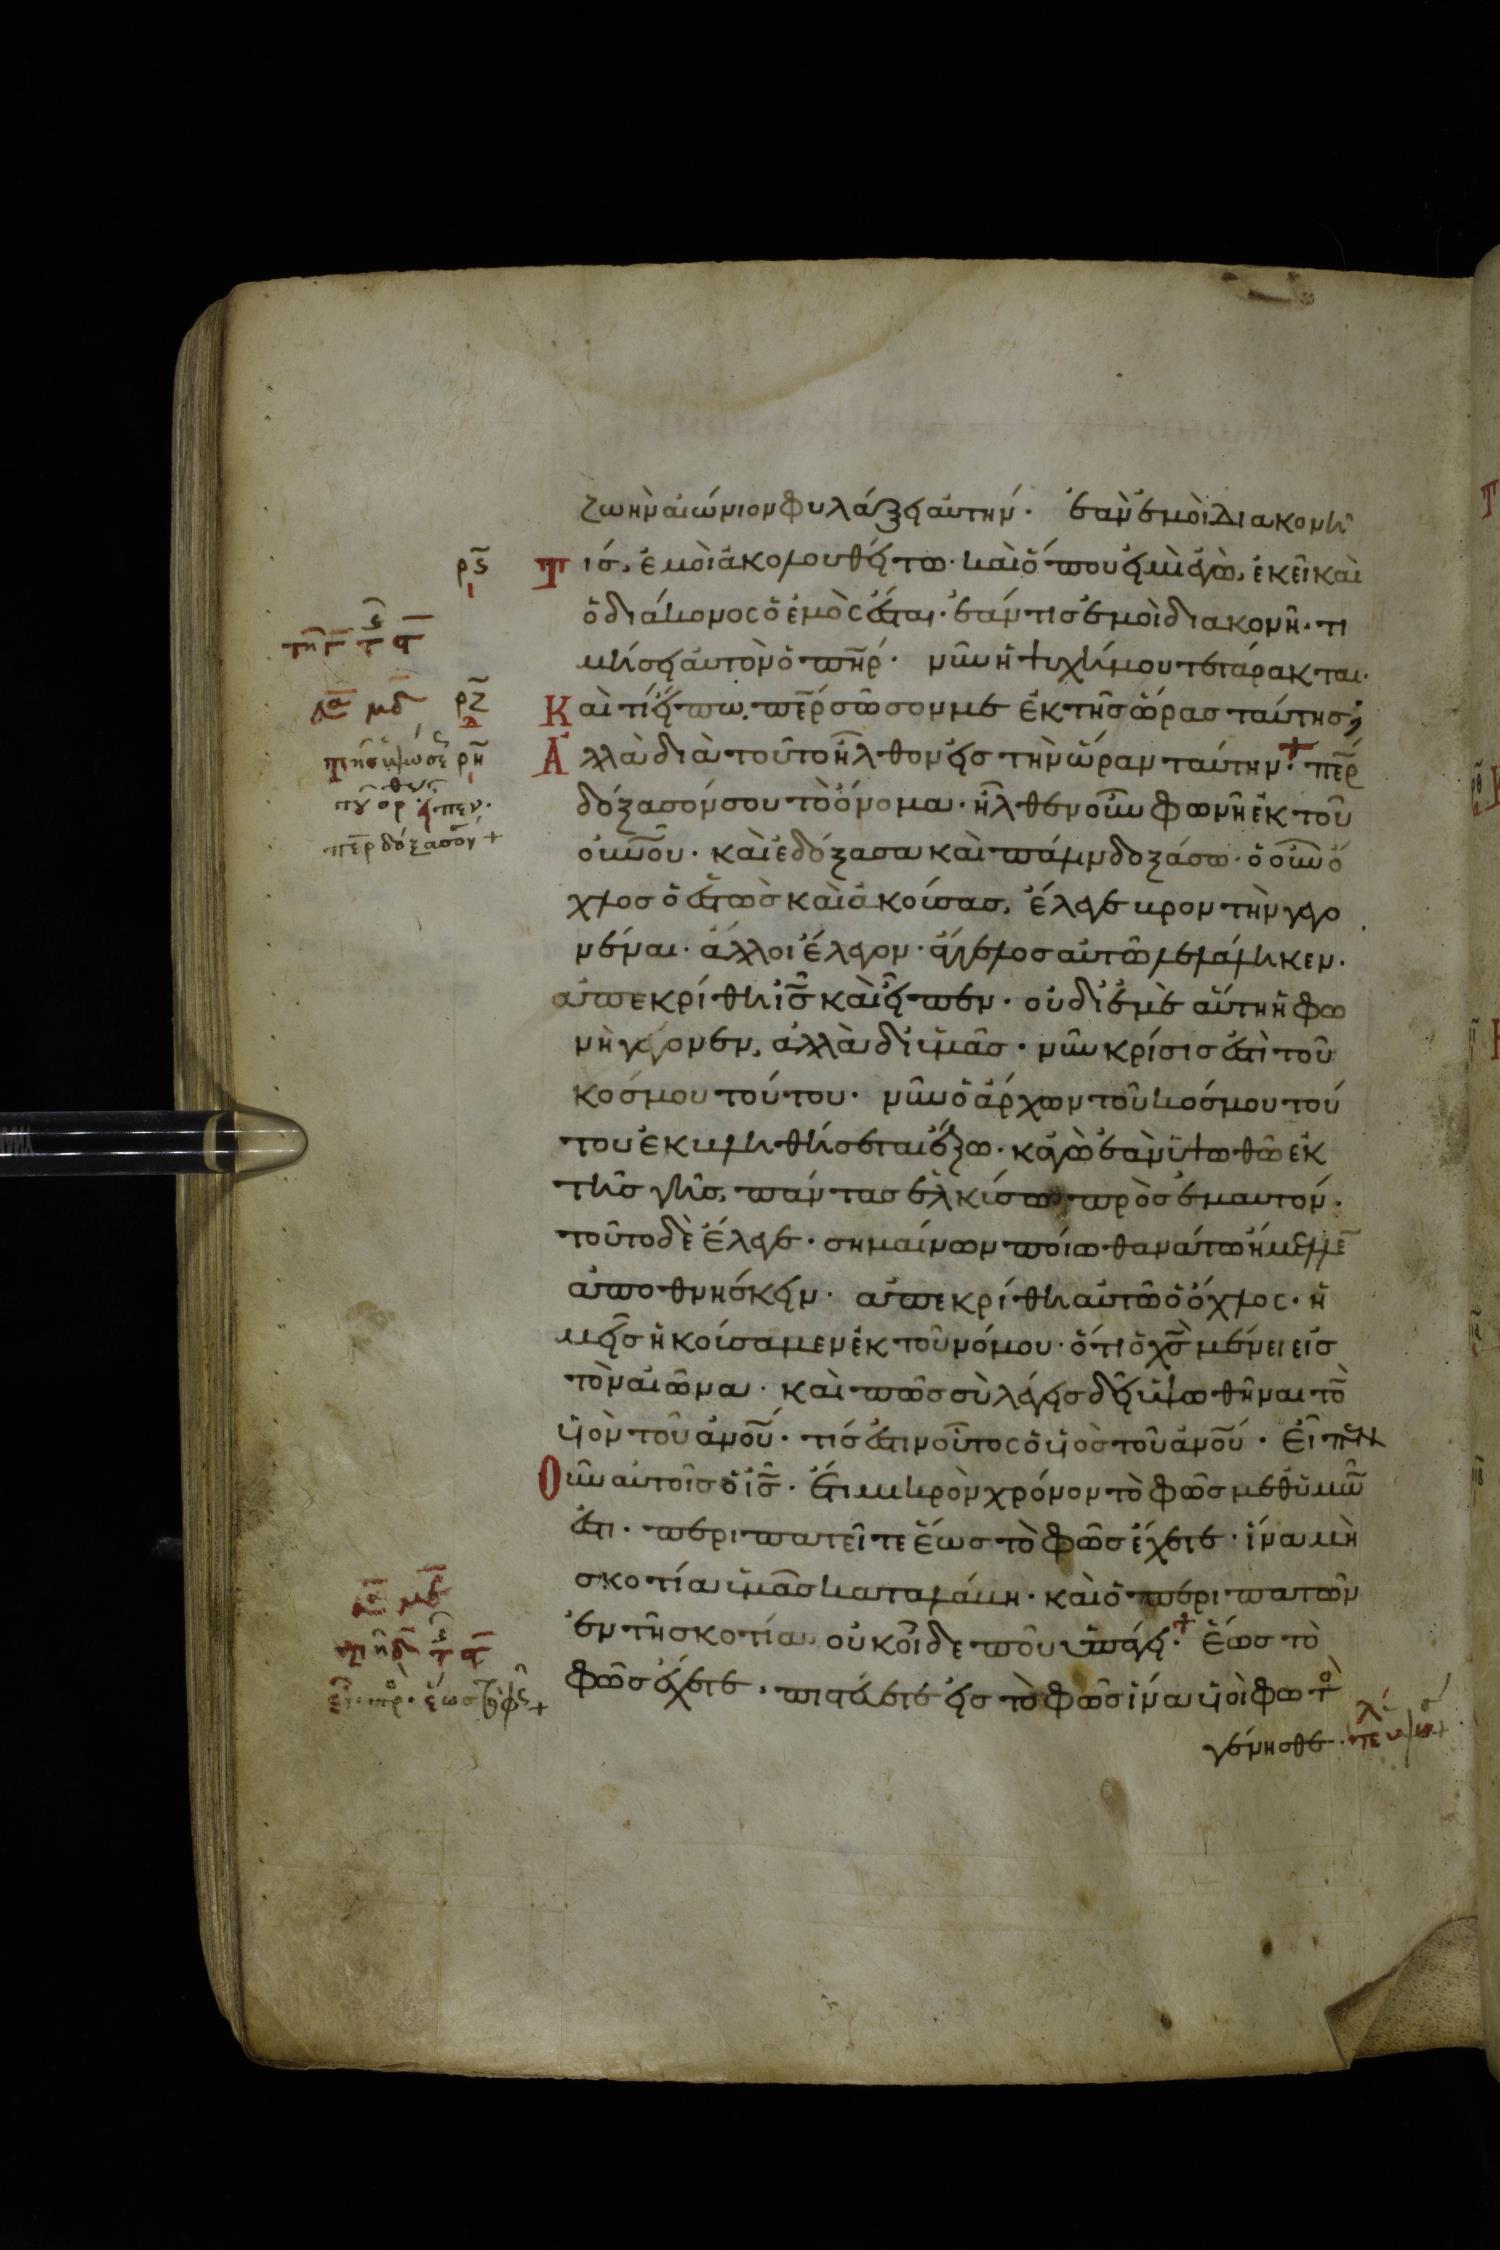 ζωὴν αἰώνιον φυλάξει αὐτήν. ἐὰν ἐμοὶ διακονῆ
ρϛ Τίς, ἐμοὶ ἀκολουθείτω. καὶ ὅπου εἰμὶ ἐγὼ, ἐκεῖ καὶ
ὁ διάκονος ὁ ἐμὸς ἔσται. ἐάν τις ἐμοὶ διακονῆ. τι
μήσει αὐτὸν ὁ πηρ. νῦν ἡ ψυχή μου τετάρακται.
ρζ Καὶ τί εἴπω. περ σῶσον με ἐκ τῆς ὥρας ταύτης;
ρη Ἀλλὰ διὰ τοῦτο ἦλθον εἰς τὴν ὥραν ταύτην. περ
δόξασόν σου τὸ ὄνομα. ἦλθεν οὖν φωνὴ ἐκ τοῦ
οὐνοῦ. καὶ ἐδόξασα καὶ πάλιν δοξάσω. ὁ οὖν ὄ
χλος ὁ ἑστὼς καὶ ἀκούσας, ἔλεγε βροντὴν γεγο
νέναι. ἄλλοι ἔλεγον. ἄγγελος αὐτῶ λελάληκεν.
ἀπεκρίθη ις καὶ εἶπεν. οὐ δι' ἐμὲ αὕτη ἡ φω
νὴ γέγονεν, ἀλλὰ δι' ὑμᾶς. νῦν κρίσις ἐστὶ τοῦ
κόσμου τούτου. νῦν ὁ ἄρχων τοῦ κόσμου τού
του ἐκβληθήσεται ἔξω. κἀγὼ ἐὰν ὑψωθῶ ἐκ
τῆς γῆς, πάντας ἑλκύσω πρὸς ἐμαυτόν.
τοῦτο δὲ ἔλεγε. σημαίνων ποίω θανάτω ἤμελλε
ἀποθνήσκειν. ἀπεκρίθη αὐτῶ ὁ ὄχλος. ἡ
μεῖς ἠκούσαμεν ἐκ τοῦ νόμου. ὅτι ὁ χς μένει εἰς
τὸν αἰῶνα. καὶ πῶς σὺ λέγεις δεῖ ὑψωθῆναι τὸ
υἱὸν τοῦ ἀνου. τίς ἐστιν οὗτος ὁ υἱὸς τοῦ ἀνου. Εἶπεν
Οὖν αὐτοῖς ὁ ις. ἔτι μικρὸν χρόνον τὸ φῶς μεθ' ὑμῶ
ἐστι. περιπατεῖτε ἕως τὸ φῶς ἔχετε. ἵνα μὴ
σκοτία ὑμᾶς καταλάβη. καὶ ὁ περιπατῶν
ἐν τῆ σκοτία, οὐκ οἶδε ποῦ ὑπάγει. ἕως τὸ
φῶς ἔχετε, πιστεύετε εἰς τὸ φῶς ἵνα υἱοὶ φωτὸ
γένησθε.